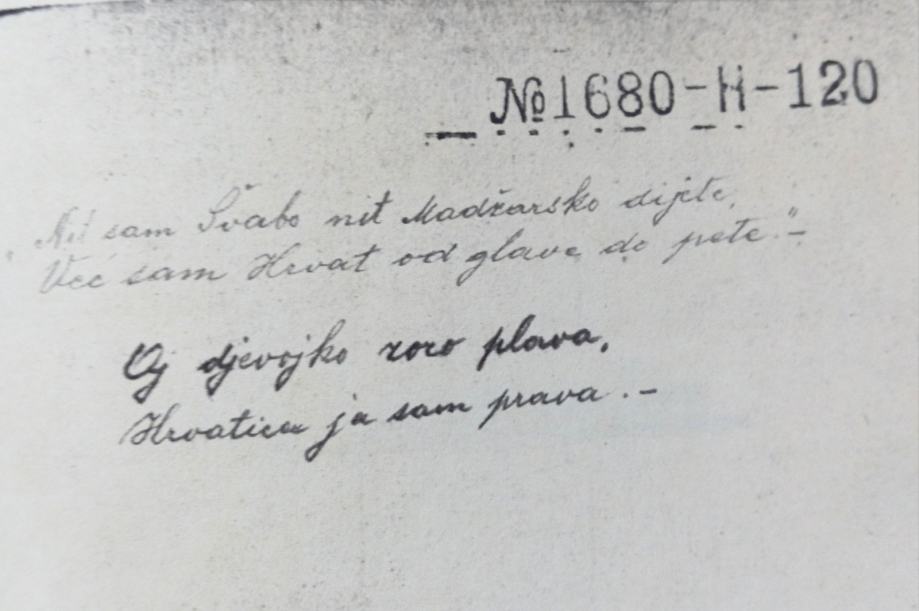 №1680-H-120
„Nit sam Švabo nit Madžarsko dijete,
Već sam Hrvat od glave do pete."-
Oj djevojko zoro plava,
Hrvatica ja sam prava.-